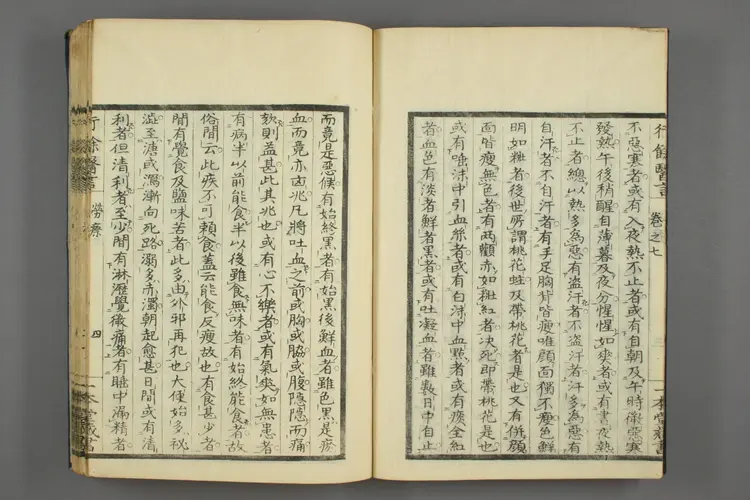 行餘醫言 卷之七
不惡寒者或有入夜熱不止者或有自朝及午時微惡寒
發熱午後稍醒自薄暮及夜分惺惺如爽者或有晝夜熱
不止者總以熱多為惡有盜汗者不盜汗者汗多為惡有
自汗者不自汗者有手足胸背皆瘦唯顏面獨不瘦色鮮
明如粧者後世所謂桃花蛀及帶桃花者是也又有併顏
面皆瘦無色者有兩顴赤如粧紅者决死即帶桃花是也
或有唾沫中引血絲者或有白沫中血點者或有痰全紅
者血色有淡者鮮者黑者或有吐凝血者雖數日中自止
而竟是惡候有始終黑者有始黑後鮮血者雖色黑是瘀
血而竟亦凶兆凡將吐血之前或胸或脇或腹隱隱而痛
欬則益甚此其兆也或有心不樂者或有氣爽如無患者
有病半以前能食半以後雖食無味者有始終能食者故
俗間云此疾不可賴食蓋云能食反瘦故也有食甚少者
間有覺食及鹽味苦者此多由外邪再犯也大便始多秘
澁至溏或瀉漸向死路溺多赤濁朝起愈甚日間或有清
利者但清利者至少間有淋瀝覺微痛者有聽中漏精者
行餘醫言 勞瘵 四
一本堂藏書